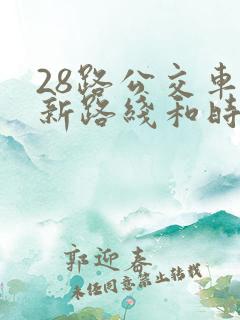 28路公交车
新路线和时
郭迎春
未经同意禁止转载